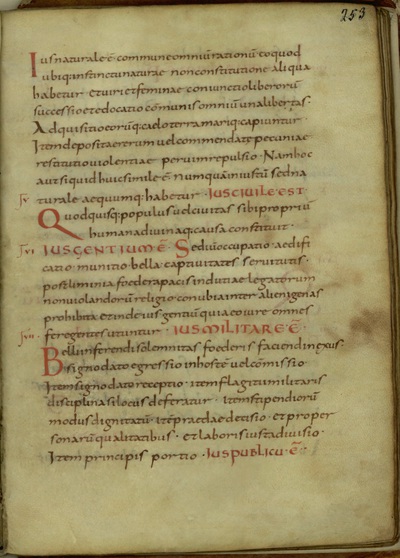 253
Ius naturale ē commune omniū rationū eo quod
ubiq; instinctu naturae non constitutione aliqua
habetur et viri et feminae coniunctio liberorū
successio et edocatio cōmunis omniū una libertas.
Adquisitio eorū q; caelo terra mariq; capiuntur.
Item depositae rei uel commendate pecuniae
restitutio violentiae per uim repulsio. Nam hoc
aut siquid huic simile ē numquā iniustū sed na
turale aequumq; habetur. IUS CIVILE EST
Quod quisq; populus uel civitas sibi propriū
humana divinaq; causa constituit.
IUS GENTIUM Ē. Sediū occupatio. aedifi
catio. munitio. bella. captivitates. servitutis.
postliminia. foedera pacis indutiae legatorum
non violandorū religio. conubia inter alienigenas
prohibita et inde ius gentiū quia eo iure omnes
fere gentes utuntur. IUS MILITARE Ē.
Belli inferendi sōlemnitas foederis faciendi nexus.
signo dato egressio in hostē vel cōmissio
Item signo dato receptio. item flagitii militaris
disciplina si locus deseratur. item stipendiorū
modus dignitatū. itē praedae decisio. et pro per
sonarū qualitatibus. et laboris iusta divisio.
Item principis portio. IUS PUBLICŪ. Ē.